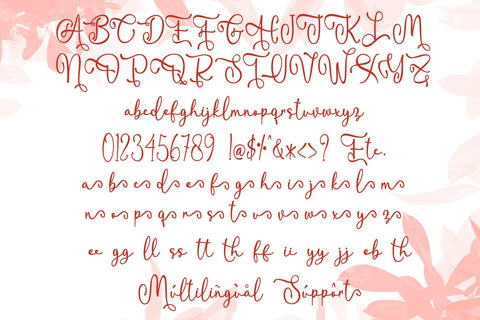 ABCDEFGHIJKLM
NOPQRSTUVWXYZ
abcdefghijklmnopqrstuvwxyz
0123456789 !@$%^&*<>? Etc.
a b c d e f g h i j k l m
n o p q r s t u v w x y z
ee gg ll ss tt th ff ii yy jj eb th
Múltilingùål Support